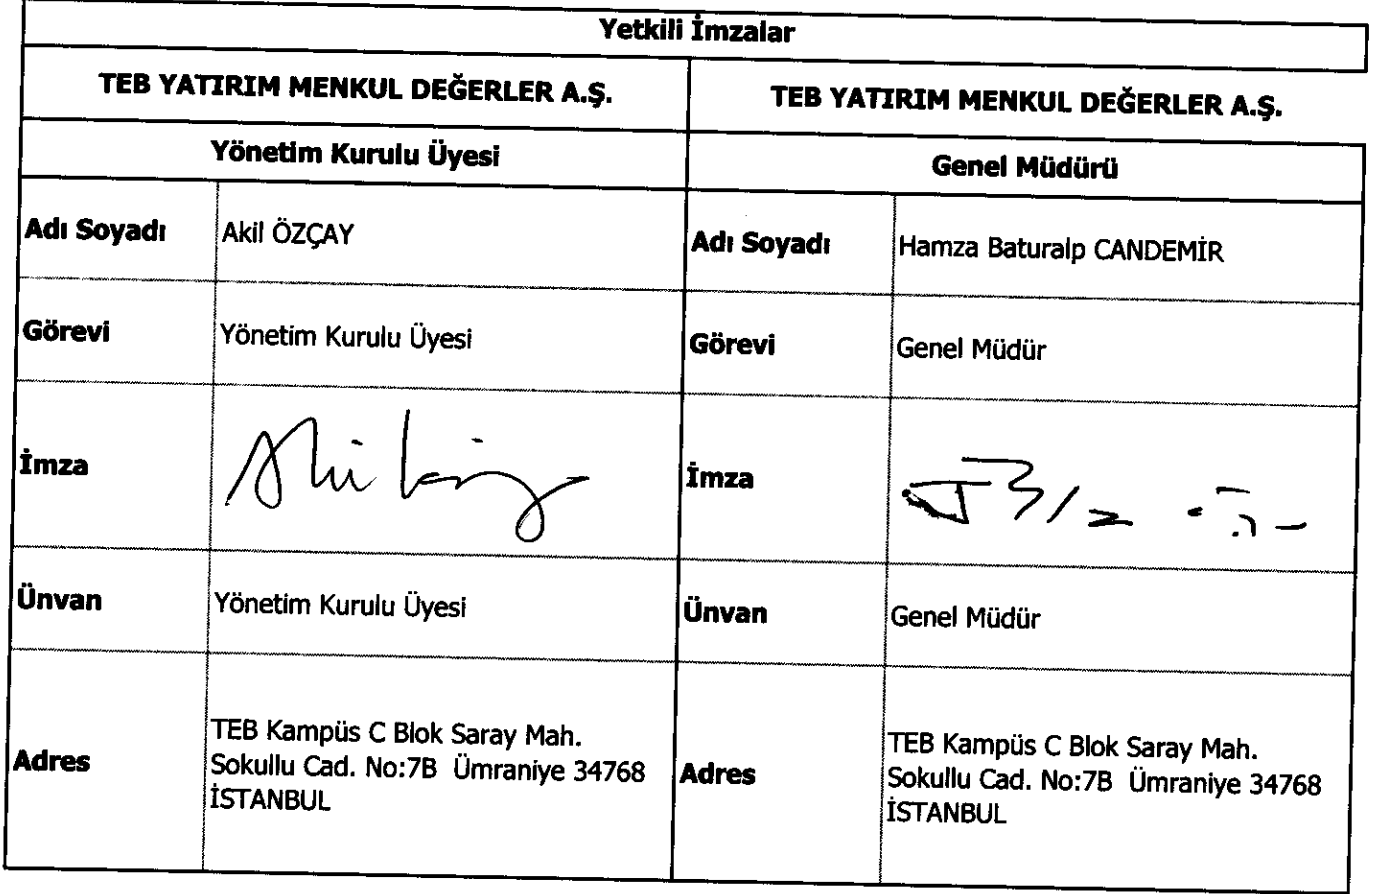 Yetkili İmzalar
TEB YATIRIM MENKUL DEĞERLER A.Ş.
TEB YATIRIM MENKUL DEĞERLER A.Ş.
Yönetim Kurulu Üyesi
Genel Müdürü
Adı Soyadı
Akil ÖZÇAY
Adı Soyadı
Hamza Baturalp CANDEMİR
Görevi
Yönetim Kurulu Üyesi
Görevi
Genel Müdür
İmza
İmza
Ünvan
Yönetim Kurulu Üyesi
Ünvan
Genel Müdür
Adres
TEB Kampüs C Blok Saray Mah.
Sokullu Cad. No:7B Ümraniye 34768
İSTANBUL
Adres
TEB Kampüs C Blok Saray Mah.
Sokullu Cad. No:7B Ümraniye 34768
İSTANBUL